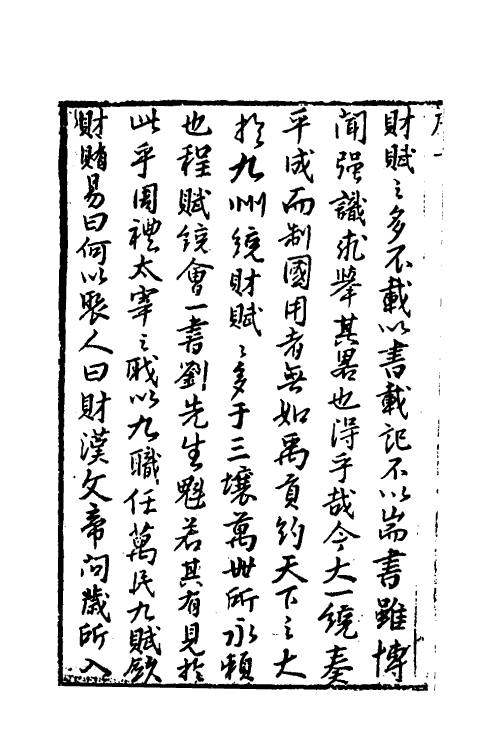 財賦之多不載以書載記不以耑書雖博
聞强識孰舉其畧也得乎哉今大一統奏
平成而制國用者無如禹貢約天下之大
於九州統財賦之多于三壤萬世所永賴
也程賦統會一書劉先生魁若其有見於
此乎周禮太宰之職以九職任萬民九賦斂
財賄易曰何以聚人曰財漢文帝問歲所入